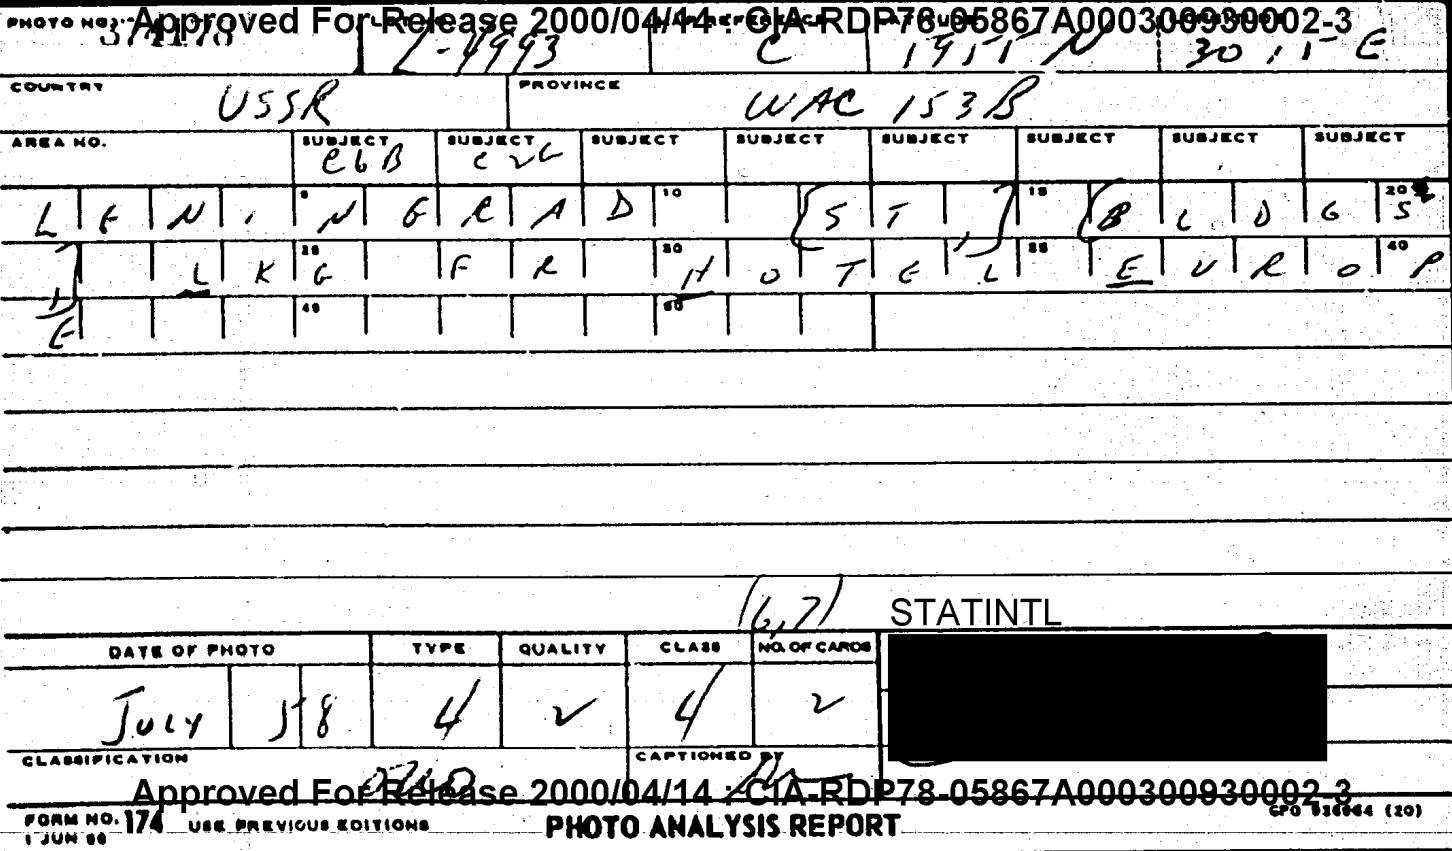 Approved For Release 2000/04/14 : CIA-RDP78-05867A000300930002-3
PHOTO NO. 374178 L-4993 C 1955 N 30 15 E
COUNTRY USSR PROVINCE WAC 153B
AREA NO. SUBJECT SUBJECT SUBJECT SUBJECT SUBJECT SUBJECT SUBJECT SUBJECT
C6B C2C
LENINGRAD 10 (ST.) 15 (BLDGS 20
) LKG 25 FR 30 HOTEL 35 EUROP 40
E 45 50
(6,7) STATINTL
DATE OF PHOTO TYPE QUALITY CLASS NO. OF CARDS
July 58 4 2 4 2
CLASSIFICATION CAPTIONED BY
Approved For Release 2000/04/14 : CIA-RDP78-05867A000300930002-3
FORM NO. 174 USE PREVIOUS EDITIONS PHOTO ANALYSIS REPORT GPO 936964 (20)
1 JUN 56